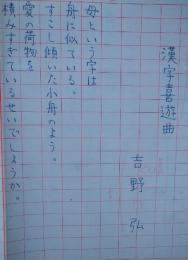 漢字喜遊曲
吉野弘
母という字は
舟に似ている。
すこし傾いた小舟のよう。
愛の荷物を
積みすぎているせいでしょうか。